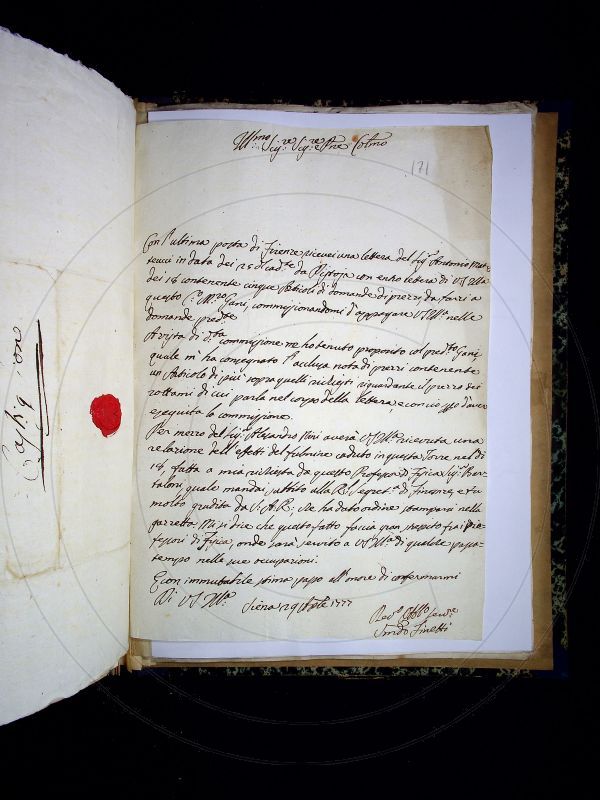 Ill:mo Sig:re Sig:re e Pne Colmo
171
Con l'ultima posta di Firenze ricevei una lettera del Sig: Antonio Mat=
teucci in data dei 25 cad:te da Pistoja con entro lettera di VS Illa
dei 18 contenente cinque Articoli di domande di prezzi da farsi a
questo Gani, commissionandomi d'appagare VS Illa nelle
domande pred:te
A vista di d:ta commissione ne ho tenuto proposito col pred:to Gani
quale m'ha consegnato l'acclusa nota di prezzi contenente
un Articolo di più sopra quelli richiesti riguardante il prezzo dei
rottami di cui parla nel corpo della lettera, e con ciò d'aver
eseguito la commissione.
Per mezzo del Sig: Alessandro Nini averà VS Illa ricevuta una
relazione dell'effetti del fulmine caduto in questa Torre nel dì
18, fatta a mia richiesta da questo Professor di Fisica Sig: Bar=
taloni, quale mandai subito alla Rl Segret:a di Finanze, e fu
molto gradita da S:A:R:, che ha dato ordine stamparsi nelle
gazzette. Mi si dice che questo fatto faccia gran strepito fra i Pro=
fessori di Fisica, onde sarà servito a VS Illa di qualche passa=
tempo nelle sue occupazioni.
E con immutabile stima passo all'onore di confermarmi
Di VS Illa: Siena 29 1777
Dev:o Obb:o Serv:re
Finetti